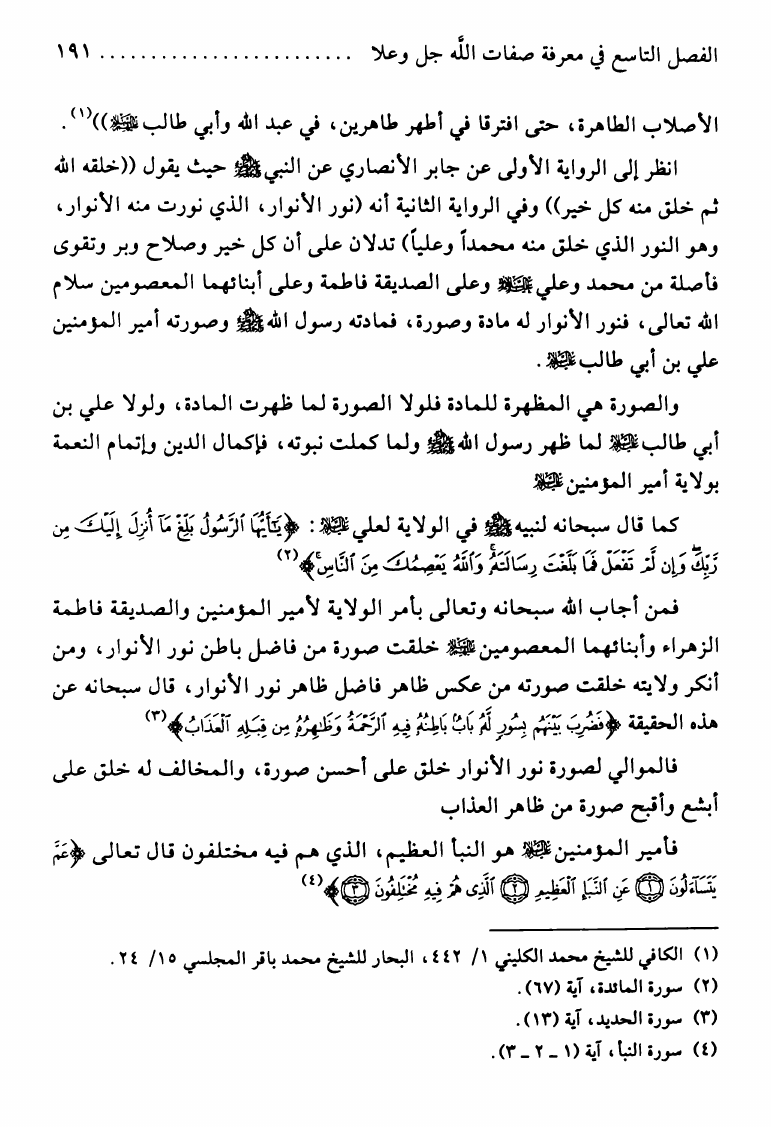 الفصل التاسع في معرفة صفات اللَّه جل وعلا ......................... ١٩١
الأصلاب الطاهرة، حتى افترقا في أطهر طاهرين، في عبد الله وأبي طالب عليه السلام))(١).
انظر إلى الرواية الأولى عن جابر الأنصاري عن النبي ﷺ حيث يقول ((خلقه الله
ثم خلق منه كل خير)) وفي الرواية الثانية أنه (نور الأنوار، الذي نورت منه الأنوار،
وهو النور الذي خلق منه محمداً وعلياً) تدلان على أن كل خير وصلاح وبر وتقوى
فأصلة من محمد وعلي عليهما السلام وعلى الصديقة فاطمة وعلى أبنائهما المعصومين سلام
الله تعالى، فنور الأنوار له مادة وصورة، فمادته رسول الله ﷺ وصورته أمير المؤمنين
علي بن أبي طالب عليه السلام.
والصورة هي المظهرة للمادة فلولا الصورة لما ظهرت المادة، ولولا علي بن
أبي طالب عليه السلام لما ظهر رسول الله ﷺ ولما كملت نبوته، فإكمال الدين وإتمام النعمة
بولاية أمير المؤمنين عليه السلام
كما قال سبحانه لنبيه ﷺ في الولاية لعلي عليه السلام: ﴿يَٰٓأَيُّهَا ٱلرَّسُولُ بَلِّغْ مَآ أُنزِلَ إِلَيْكَ مِن
رَّبِّكَۖ وَإِن لَّمْ تَفْعَلْ فَمَا بَلَّغْتَ رِسَالَتَهُۥۚ وَٱللَّهُ يَعْصِمُكَ مِنَ ٱلنَّاسِۗ﴾(٢)
فمن أجاب الله سبحانه وتعالى بأمر الولاية لأمير المؤمنين والصديقة فاطمة
الزهراء وأبنائهما المعصومين عليهم السلام خلقت صورة من فاضل باطن نور الأنوار، ومن
أنكر ولايته خلقت صورته من عكس ظاهر فاضل ظاهر نور الأنوار، قال سبحانه عن
هذه الحقيقة ﴿فَضُرِبَ بَيْنَهُم بِسُورٍ لَّهُۥ بَابُۢ بَاطِنُهُۥ فِيهِ ٱلرَّحْمَةُ وَظَٰهِرُهُۥ مِن قِبَلِهِ ٱلْعَذَابُ﴾(٣)
فالموالي لصورة نور الأنوار خلق على أحسن صورة، والمخالف له خلق على
أبشع وأقبح صورة من ظاهر العذاب
فأمير المؤمنين عليه السلام هو النبأ العظيم، الذي هم فيه مختلفون قال تعالى ﴿عَمَّ
يَتَسَآءَلُونَ ١ عَنِ ٱلنَّبَإِ ٱلْعَظِيمِ ٢ ٱلَّذِى هُمْ فِيهِ مُخْتَلِفُونَ ٣﴾(٤)
(١) الكافي للشيخ محمد الكليني ١/ ٤٤٢، البحار للشيخ محمد باقر المجلسي ١٥/ ٢٤.
(٢) سورة المائدة، آية (٦٧).
(٣) سورة الحديد، آية (١٣).
(٤) سورة النبأ، آية (١ ـ ٢ ـ ٣).